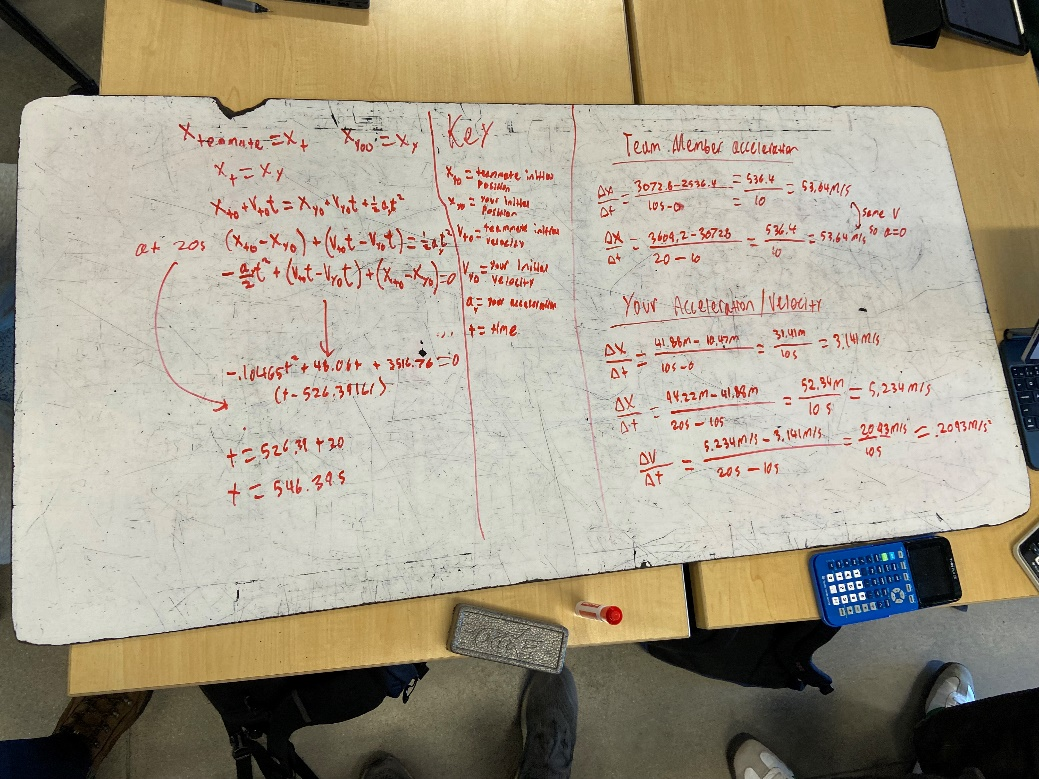 X_teammate = X_t X_you = X_y
X_t = X_y
X_t0 + V_t0 t = X_y0 + V_y0 t + ½ a_y t²
at 20s (X_t0 - X_y0) + (V_t0 t - V_y0 t) = ½ a_y t²
- a_y/2 t² + (V_t0 t - V_y0 t) + (X_t0 - X_y0) = 0
-.10465t² + 48.06t + 3516.76 = 0
(t - 526.39161)
t = 526.39 + 20
t = 546.39 s
Key
X_t0 = teammate initial position
X_y0 = your initial position
V_t0 = teammate initial velocity
V_y0 = your initial velocity
a_y = your acceleration
t = time
Team Member acceleration
Δx/Δt = (3072.8 - 2536.4)/(10s - 0) = 536.4/10 = 53.64 m/s
Δx/Δt = (3609.2 - 3072.8)/(20 - 10) = 536.4/10 = 53.64 m/s
same V
so a=0
Your Acceleration/Velocity
Δx/Δt = (41.88m - 10.47m)/(10s - 0) = 31.41m/10s = 3.141 m/s
Δx/Δt = (94.22m - 41.88m)/(20s - 10s) = 52.34m/10s = 5.234 m/s
ΔV/Δt = (5.234m/s - 3.141m/s)/(20s - 10s) = 2.093m/s/10s = .2093m/s²